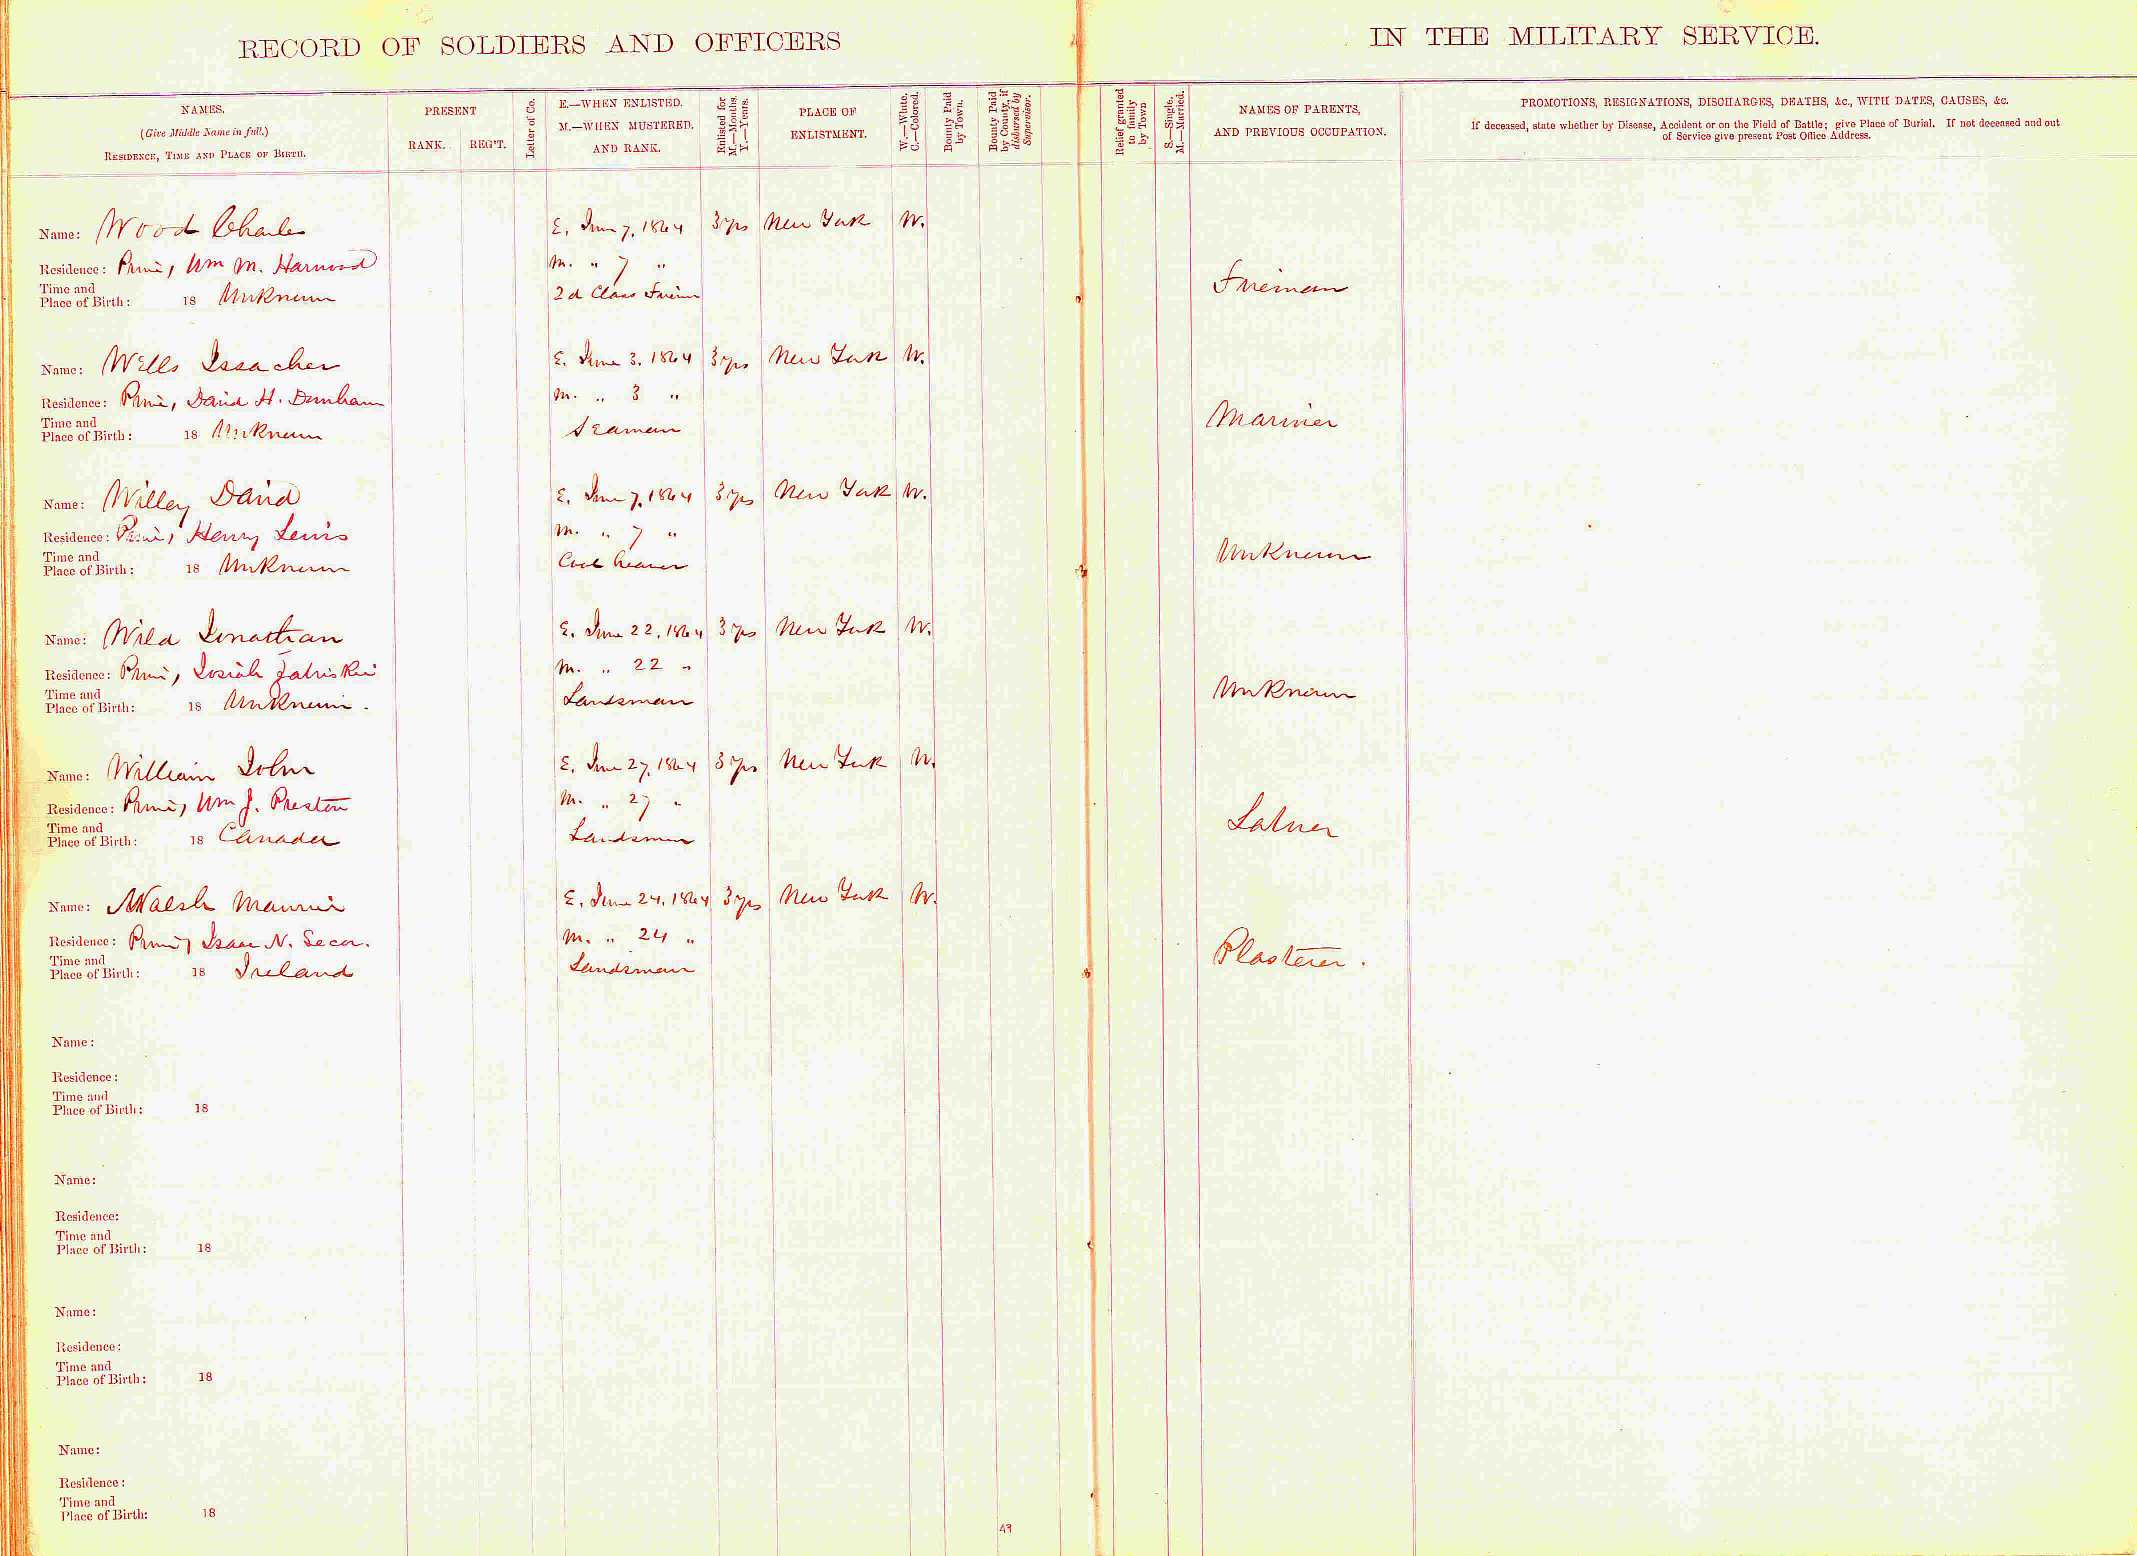 RECORD OF SOLDIERS AND OFFICERS IN THE MILITARY SERVICE.
NAMES.
(Give Middle Name in full.)
RESIDENCE, TIME AND PLACE OF BIRTH.
PRESENT
RANK. REG'T.
Letter of Co.
E.—WHEN ENLISTED.
M.—WHEN MUSTERED.
AND RANK.
Enlisted for
M.—Months.
Y.—Years.
PLACE OF
ENLISTMENT.
W.—White.
C.—Colored.
Bounty Paid
by Town.
Bounty Paid
by County, if
disbursed by
Supervisor.
Relief granted
to family
by Town
S.—Single.
M.—Married.
NAMES OF PARENTS,
AND PREVIOUS OCCUPATION.
PROMOTIONS, RESIGNATIONS, DISCHARGES, DEATHS, &c., WITH DATES, CAUSES, &c.
If deceased, state whether by Disease, Accident or on the Field of Battle; give Place of Burial. If not deceased and out
of Service give present Post Office Address.
Name: Wood Charles E. June 7, 1864 3 yrs New York W.
Residence: Prin, Wm M. Harwood M. " 7 "
Time and
Place of Birth: 18 Unknown 2d Class Fireman Fireman
Name: Wells Issacher E. June 3, 1864 3 yrs New York W.
Residence: Prin, David H. Dunham M. " 3 "
Time and
Place of Birth: 18 Unknown Seaman Mariner
Name: Willey David E. June 7, 1864 3 yrs New York W.
Residence: Prin, Henry Lewis M. " 7 "
Time and
Place of Birth: 18 Unknown Coal heaver Unknown
Name: Wild Jonathan E. June 22, 1864 3 yrs New York W.
Residence: Prin, Josiah Zabriskie M. " 22 "
Time and
Place of Birth: 18 Unknown. Landsman Unknown
Name: William John E. June 27, 1864 3 yrs New York W.
Residence: Prin, Wm J. Preston M. " 27 "
Time and
Place of Birth: 18 Canada Landsman Labrer
Name: Walsh Maurice E. June 24, 1864 3 yrs New York W.
Residence: Prin, Isaac N. Secor. M. " 24 "
Time and
Place of Birth: 18 Ireland Landsman Plasterer.
Name:
Residence:
Time and
Place of Birth: 18
Name:
Residence:
Time and
Place of Birth: 18
Name:
Residence:
Time and
Place of Birth: 18
Name:
Residence:
Time and
Place of Birth: 18
49